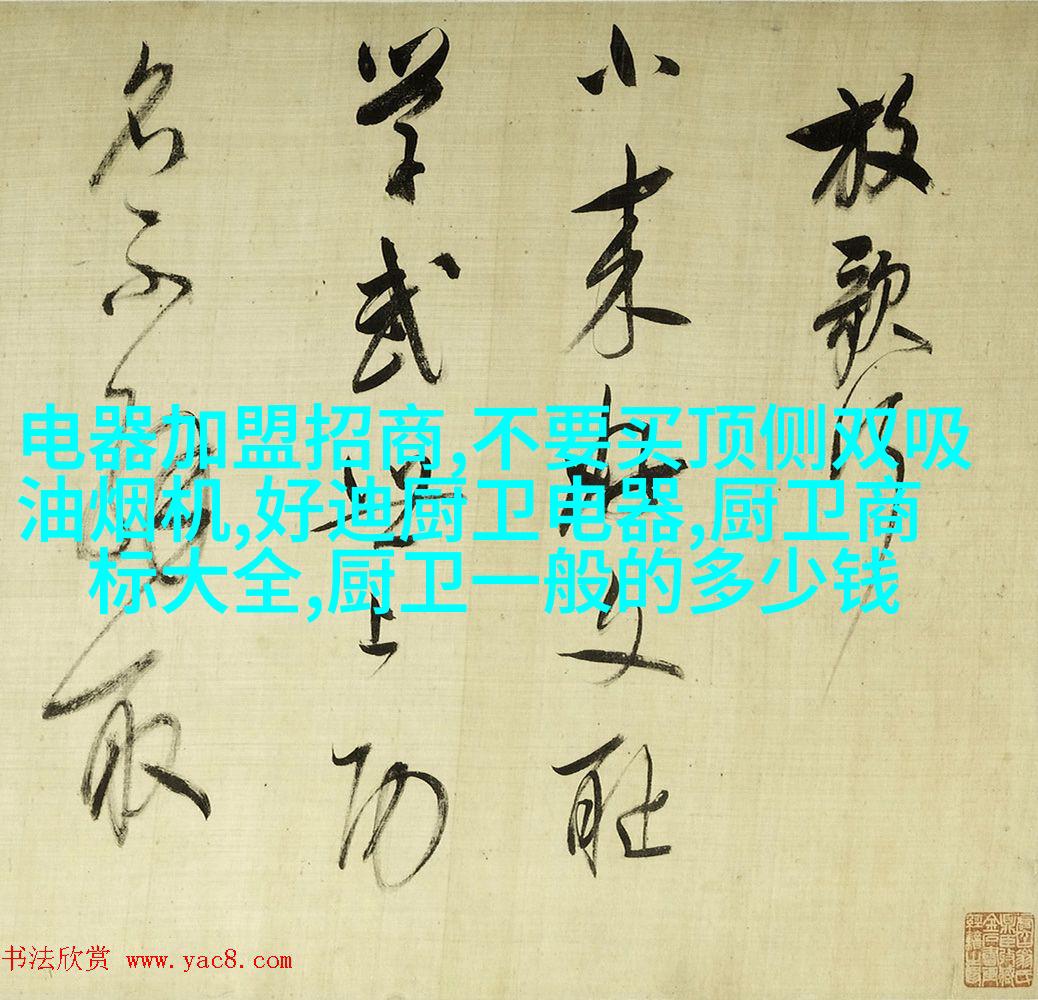 放歌行
小来好文耻
学武世上功
名不解取
电器加盟招商,不要买顶侧双吸
油烟机,好迪厨卫电器,厨卫商
标大全,厨卫一般的多少钱
书法欣赏 www.yac8.com